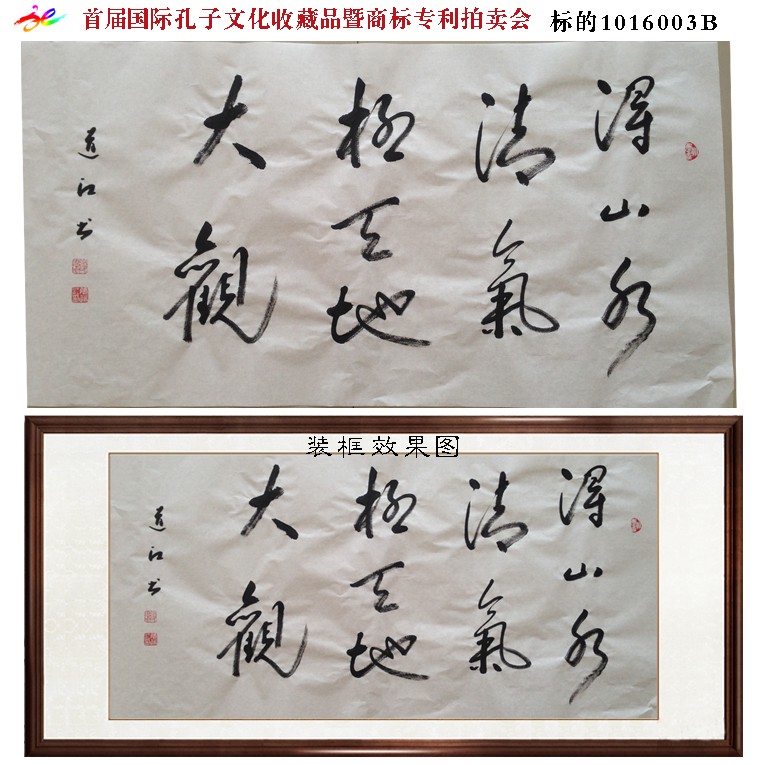 首届国际孔子文化收藏品暨商标专利拍卖会 标的1016003B
得山水
清氣
極天地
大觀
道江书
装框效果图
得山水
清氣
極天地
大觀
道江书